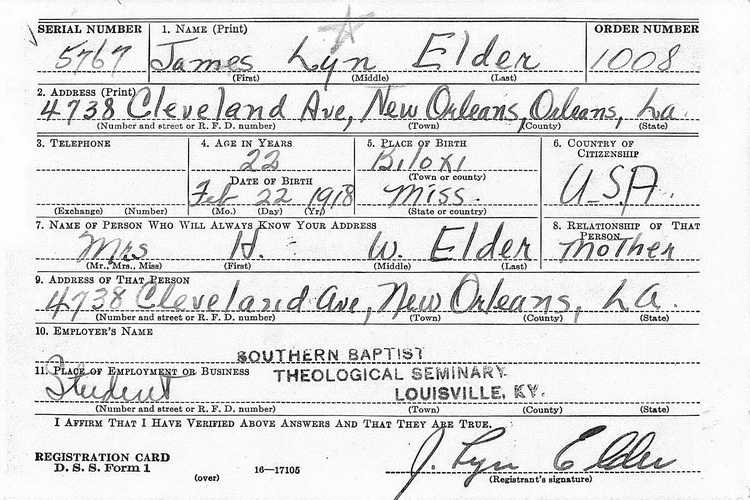 SERIAL NUMBER 1. NAME (Print) ORDER NUMBER
5767 James Lyn Elder 1008
(First) (Middle) (Last)
2. ADDRESS (Print)
4738 Cleveland Ave, New Orleans, Orleans, La
(Number and street or R. F. D. number) (Town) (County) (State)
3. TELEPHONE 4. AGE IN YEARS 5. PLACE OF BIRTH 6. COUNTRY OF CITIZENSHIP
22 Biloxi
(Town or county)
DATE OF BIRTH
Feb 22 1918 Miss. U.S.A.
(Exchange) (Number) (Mo.) (Day) (Yr.) (State or country)
7. NAME OF PERSON WHO WILL ALWAYS KNOW YOUR ADDRESS 8. RELATIONSHIP OF THAT PERSON
Mrs H. W. Elder Mother
(Mr., Mrs., Miss) (First) (Middle) (Last)
9. ADDRESS OF THAT PERSON
4738 Cleveland Ave, New Orleans, LA.
(Number and street or R. F. D. number) (Town) (County) (State)
10. EMPLOYER'S NAME
SOUTHERN BAPTIST
11. PLACE OF EMPLOYMENT OR BUSINESS THEOLOGICAL SEMINARY
Student LOUISVILLE, KY.
(Number and street or R. F. D. number) (Town) (County) (State)
I AFFIRM THAT I HAVE VERIFIED ABOVE ANSWERS AND THAT THEY ARE TRUE.
REGISTRATION CARD
D. S. S. Form 1 (over) 16—17105 J. Lyn Elder
(Registrant's signature)